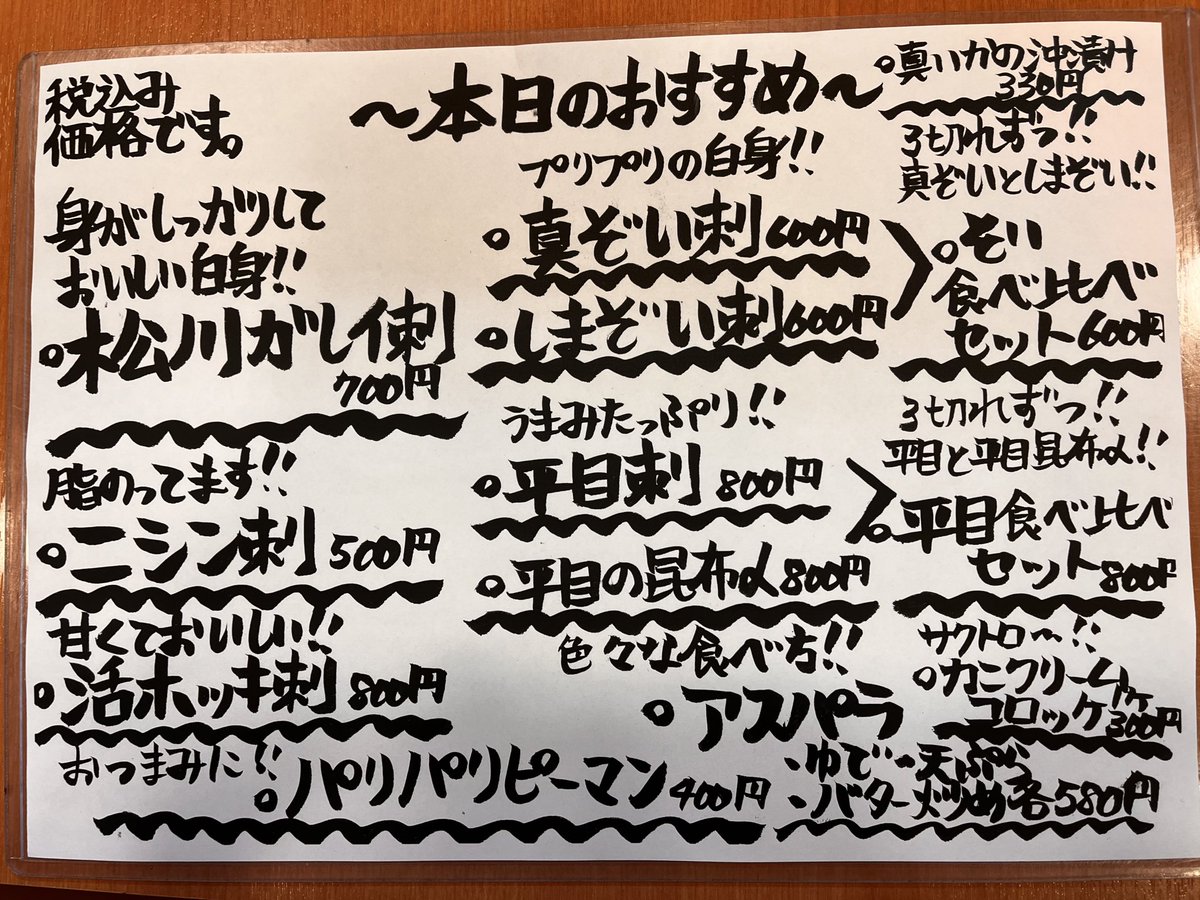 税込み
価格です。
〜本日のおすすめ〜
身がしっカリして
おいしい白身!!
松川がレイ刺
700円
脂のってます!!
ニシン刺 500円
甘くておいしい!!
活ホッキ刺 800円
おつまみに!!
パリパリピーマン 400円
プリプリの白身!!
真ぞい刺 600円
しまぞい刺 600円
うまみたっぷり!!
平目刺 800円
平目の昆布〆 800円
色々な食べ方!!
アスパラ
・ゆで・天ぷら
・バター炒め 各580円
真いかの沖漬け
330円
3切れずつ!!
真ぞいとしまぞい!!
そい
食べ比べ
セット 600円
3切れずつ!!
平目と平目昆布〆!!
平目食べ比べ
セット 800円
サクトロ〜!!
カニクリーム
コロッケ 1ヶ 300円